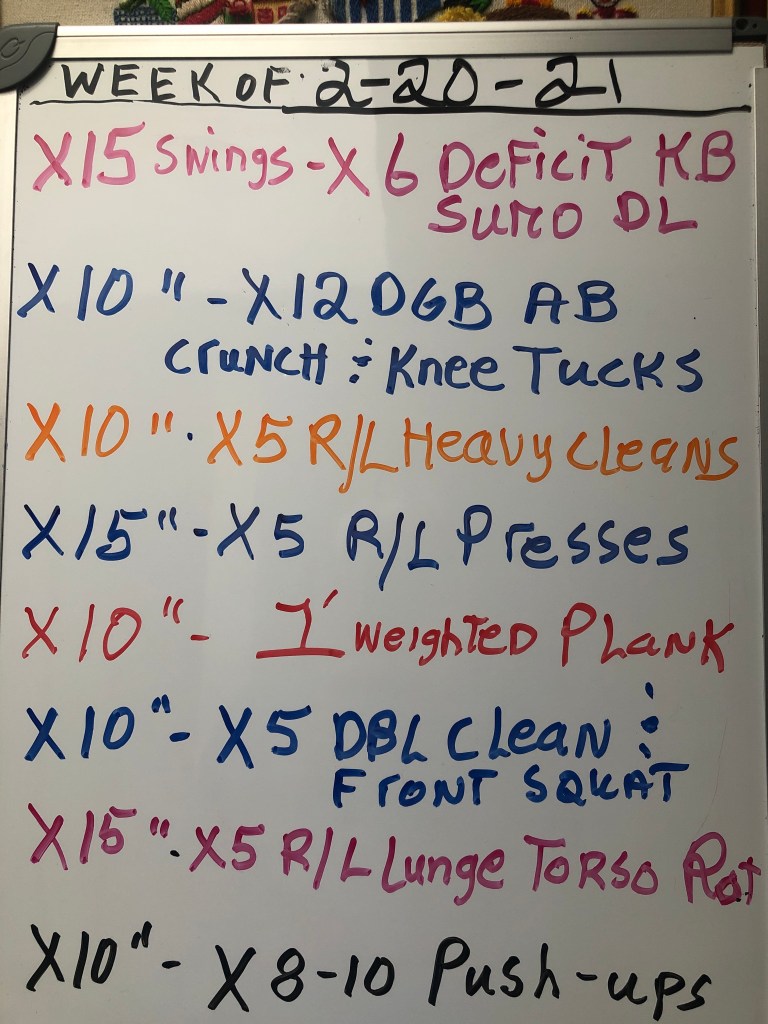 WEEK OF: 2-20-21
X15 Swings - X 6 DEFICIT KB
SUMO DL
X10 " - X12 DGB AB
CRUNCH & Knee TUCKS
X10 " . X5 R/L Heavy Cleans
X15 " - X5 R/L Presses
X10 " - 1' WEIGHTED PLANK
X10 " - X5 DBL Clean &
FRONT SQUAT
X15 " . X5 R/L Lunge TORSO Rot
X10 " - X 8-10 Push-ups